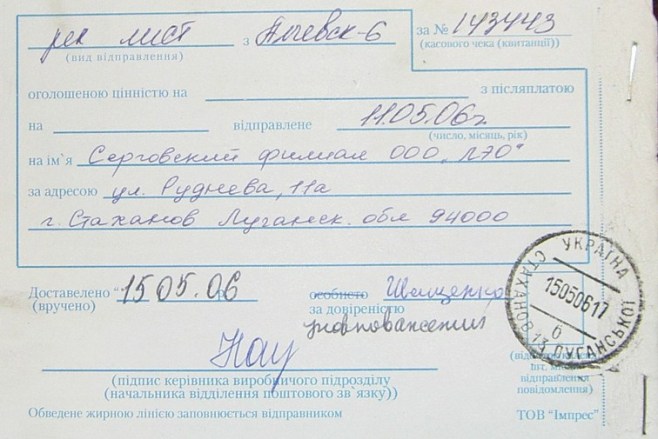 рек лист з Алчевск-6 за № 143443
(вид відправлення) (касового чека (квитанції))
оголошеною цінністю на з післяплатою
на відправлене 11.05.06г
(число, місяць, рік)
на ім'я Серговский филиал ООО „ЛЭО"
за адресою ул. Руднева, 11а
г. Стаханов Луганск. обл 94000
Доставлено "15 05. 06 особисто
(вручено) за довіреністю
уповноважений
(підпис керівника виробничого підрозділу
(начальника відділення поштового зв'язку))
Обведене жирною лінією заповнюється відправником
ТОВ "Імпрес"
УКРАЇНА
15050617
б
ЛУГАНСЬКОЇ
відправлення
повідомлення)